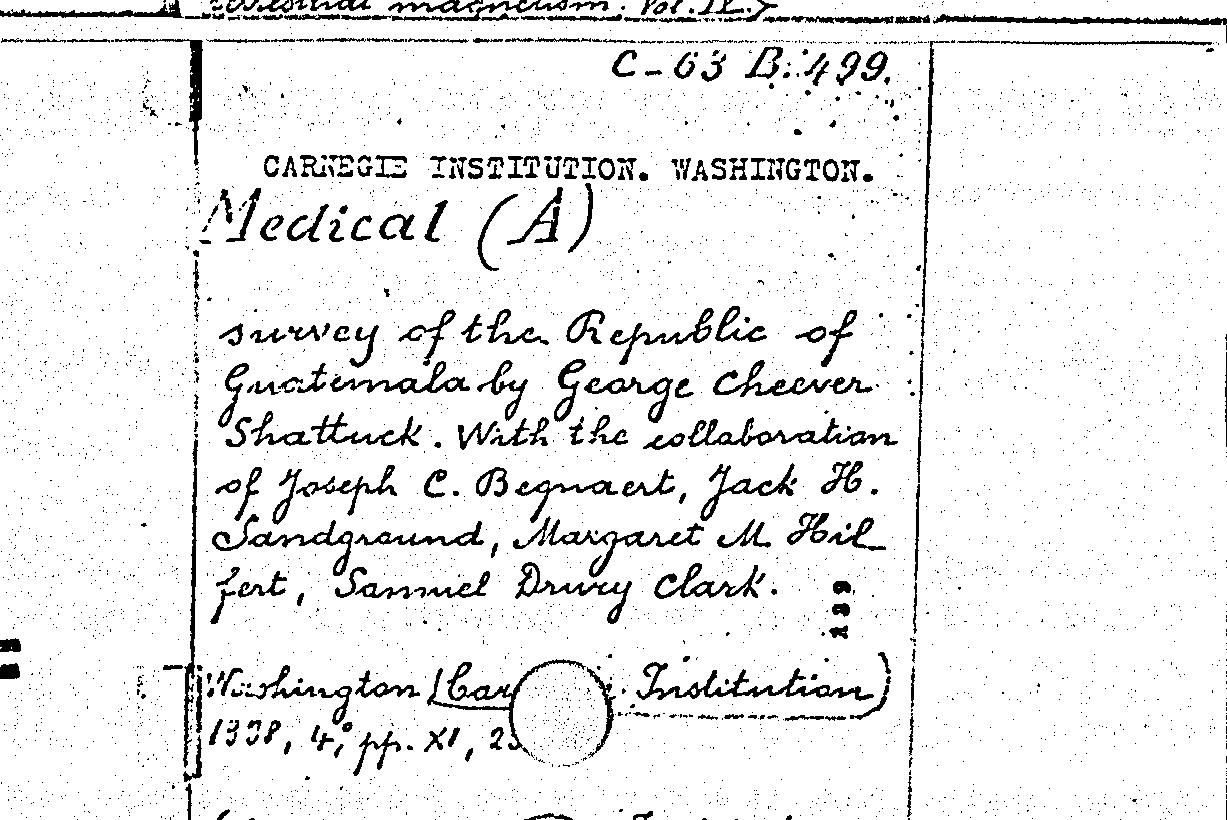 magnetism. Vol. IX.
C-63 B. 499.
CARNEGIE INSTITUTION. WASHINGTON.
Medical (A)
survey of the Republic of
Guatemala by George Cheever
Shattuck. With the collaboration
of Joseph C. Beqnaert, Jack H.
Sandground, Margaret M. Hil_
fert, Samuel Drury Clark.
139
Washington (Car Institution)
1938, 4°, pp. XI,